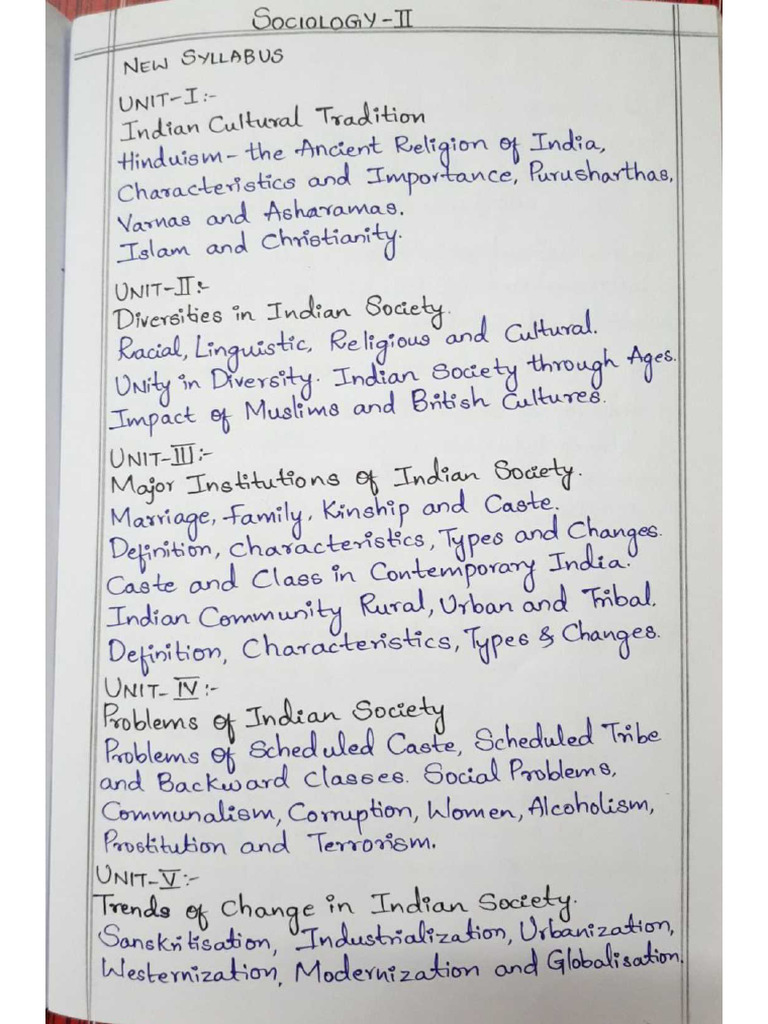 SOCIOLOGY-II
NEW SYLLABUS
UNIT-I:-
Indian Cultural Tradition
Hinduism - the Ancient Religion of India,
Characteristics and Importance, Purusharthas,
Varnas and Asharamas.
Islam and Christianity.
UNIT-II:-
Diversities in Indian Society.
Racial, Linguistic, Religious and Cultural.
Unity in Diversity. Indian Society through Ages.
Impact of Muslims and British Cultures.
UNIT-III:-
Major Institutions of Indian Society.
Marriage, Family, Kinship and Caste.
Definition, Characteristics, Types and Changes.
Caste and Class in Contemporary India.
Indian Community Rural, Urban and Tribal.
Definition, Characteristics, Types & Changes.
UNIT-IV:-
Problems of Indian Society
Problems of Scheduled Caste, Scheduled Tribe
and Backward Classes. Social Problems,
Communalism, Corruption, Women, Alcoholism,
Prostitution and Terrorism.
UNIT-V:-
Trends of Change in Indian Society.
Sanskritisation, Industrialization, Urbanization,
Westernization, Modernization and Globalisation.